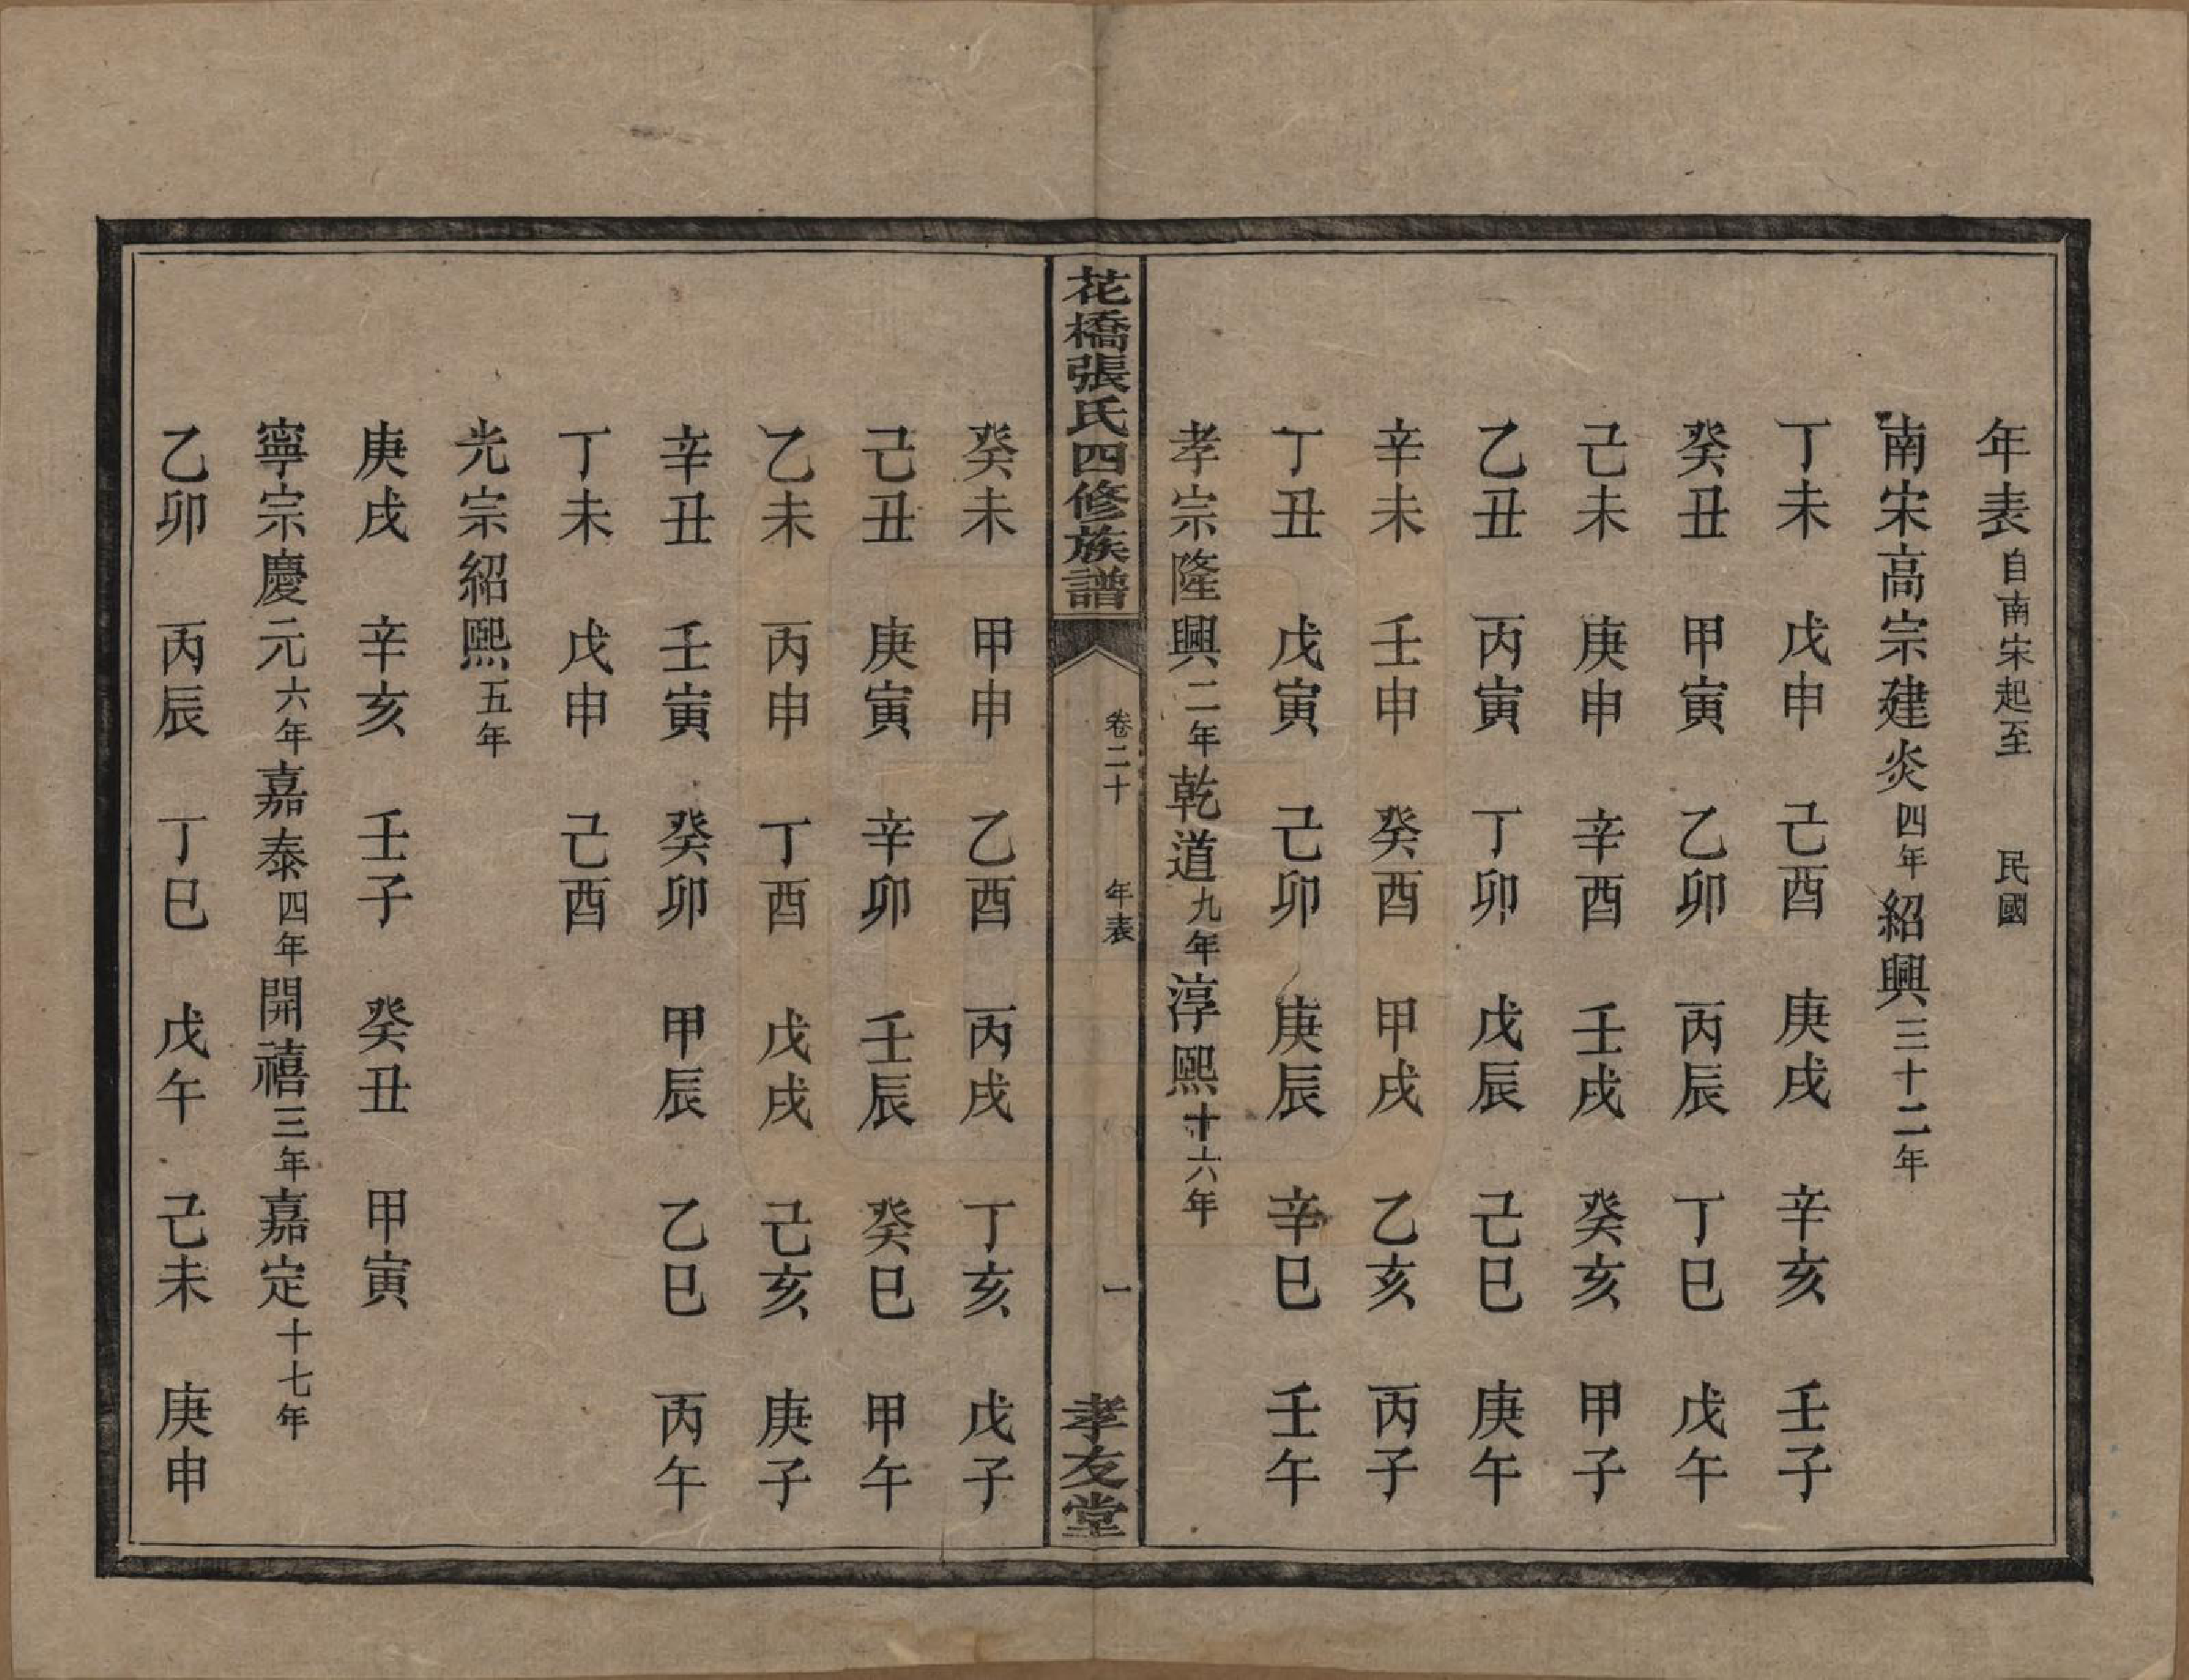 年表自南宋起至 民國
南宋高宗建炎四年紹興三十二年
丁未 戊申 己酉 庚戌 辛亥 壬子
癸丑 甲寅 乙卯 丙辰 丁巳 戊午
己未 庚申 辛酉 壬戌 癸亥 甲子
乙丑 丙寅 丁卯 戊辰 己巳 庚午
辛未 壬申 癸酉 甲戌 乙亥 丙子
丁丑 戊寅 己卯 庚辰 辛巳 壬午
孝宗隆興二年乾道九年淳熙十六年
花橋張氏四修族譜 卷二十 年表 一 孝友堂
癸未 甲申 乙酉 丙戌 丁亥 戊子
己丑 庚寅 辛卯 壬辰 癸巳 甲午
乙未 丙申 丁酉 戊戌 己亥 庚子
辛丑 壬寅 癸卯 甲辰 乙巳 丙午
丁未 戊申 己酉
光宗紹熙五年
庚戌 辛亥 壬子 癸丑 甲寅
寧宗慶元六年嘉泰四年開禧三年嘉定十七年
乙卯 丙辰 丁巳 戊午 己未 庚申